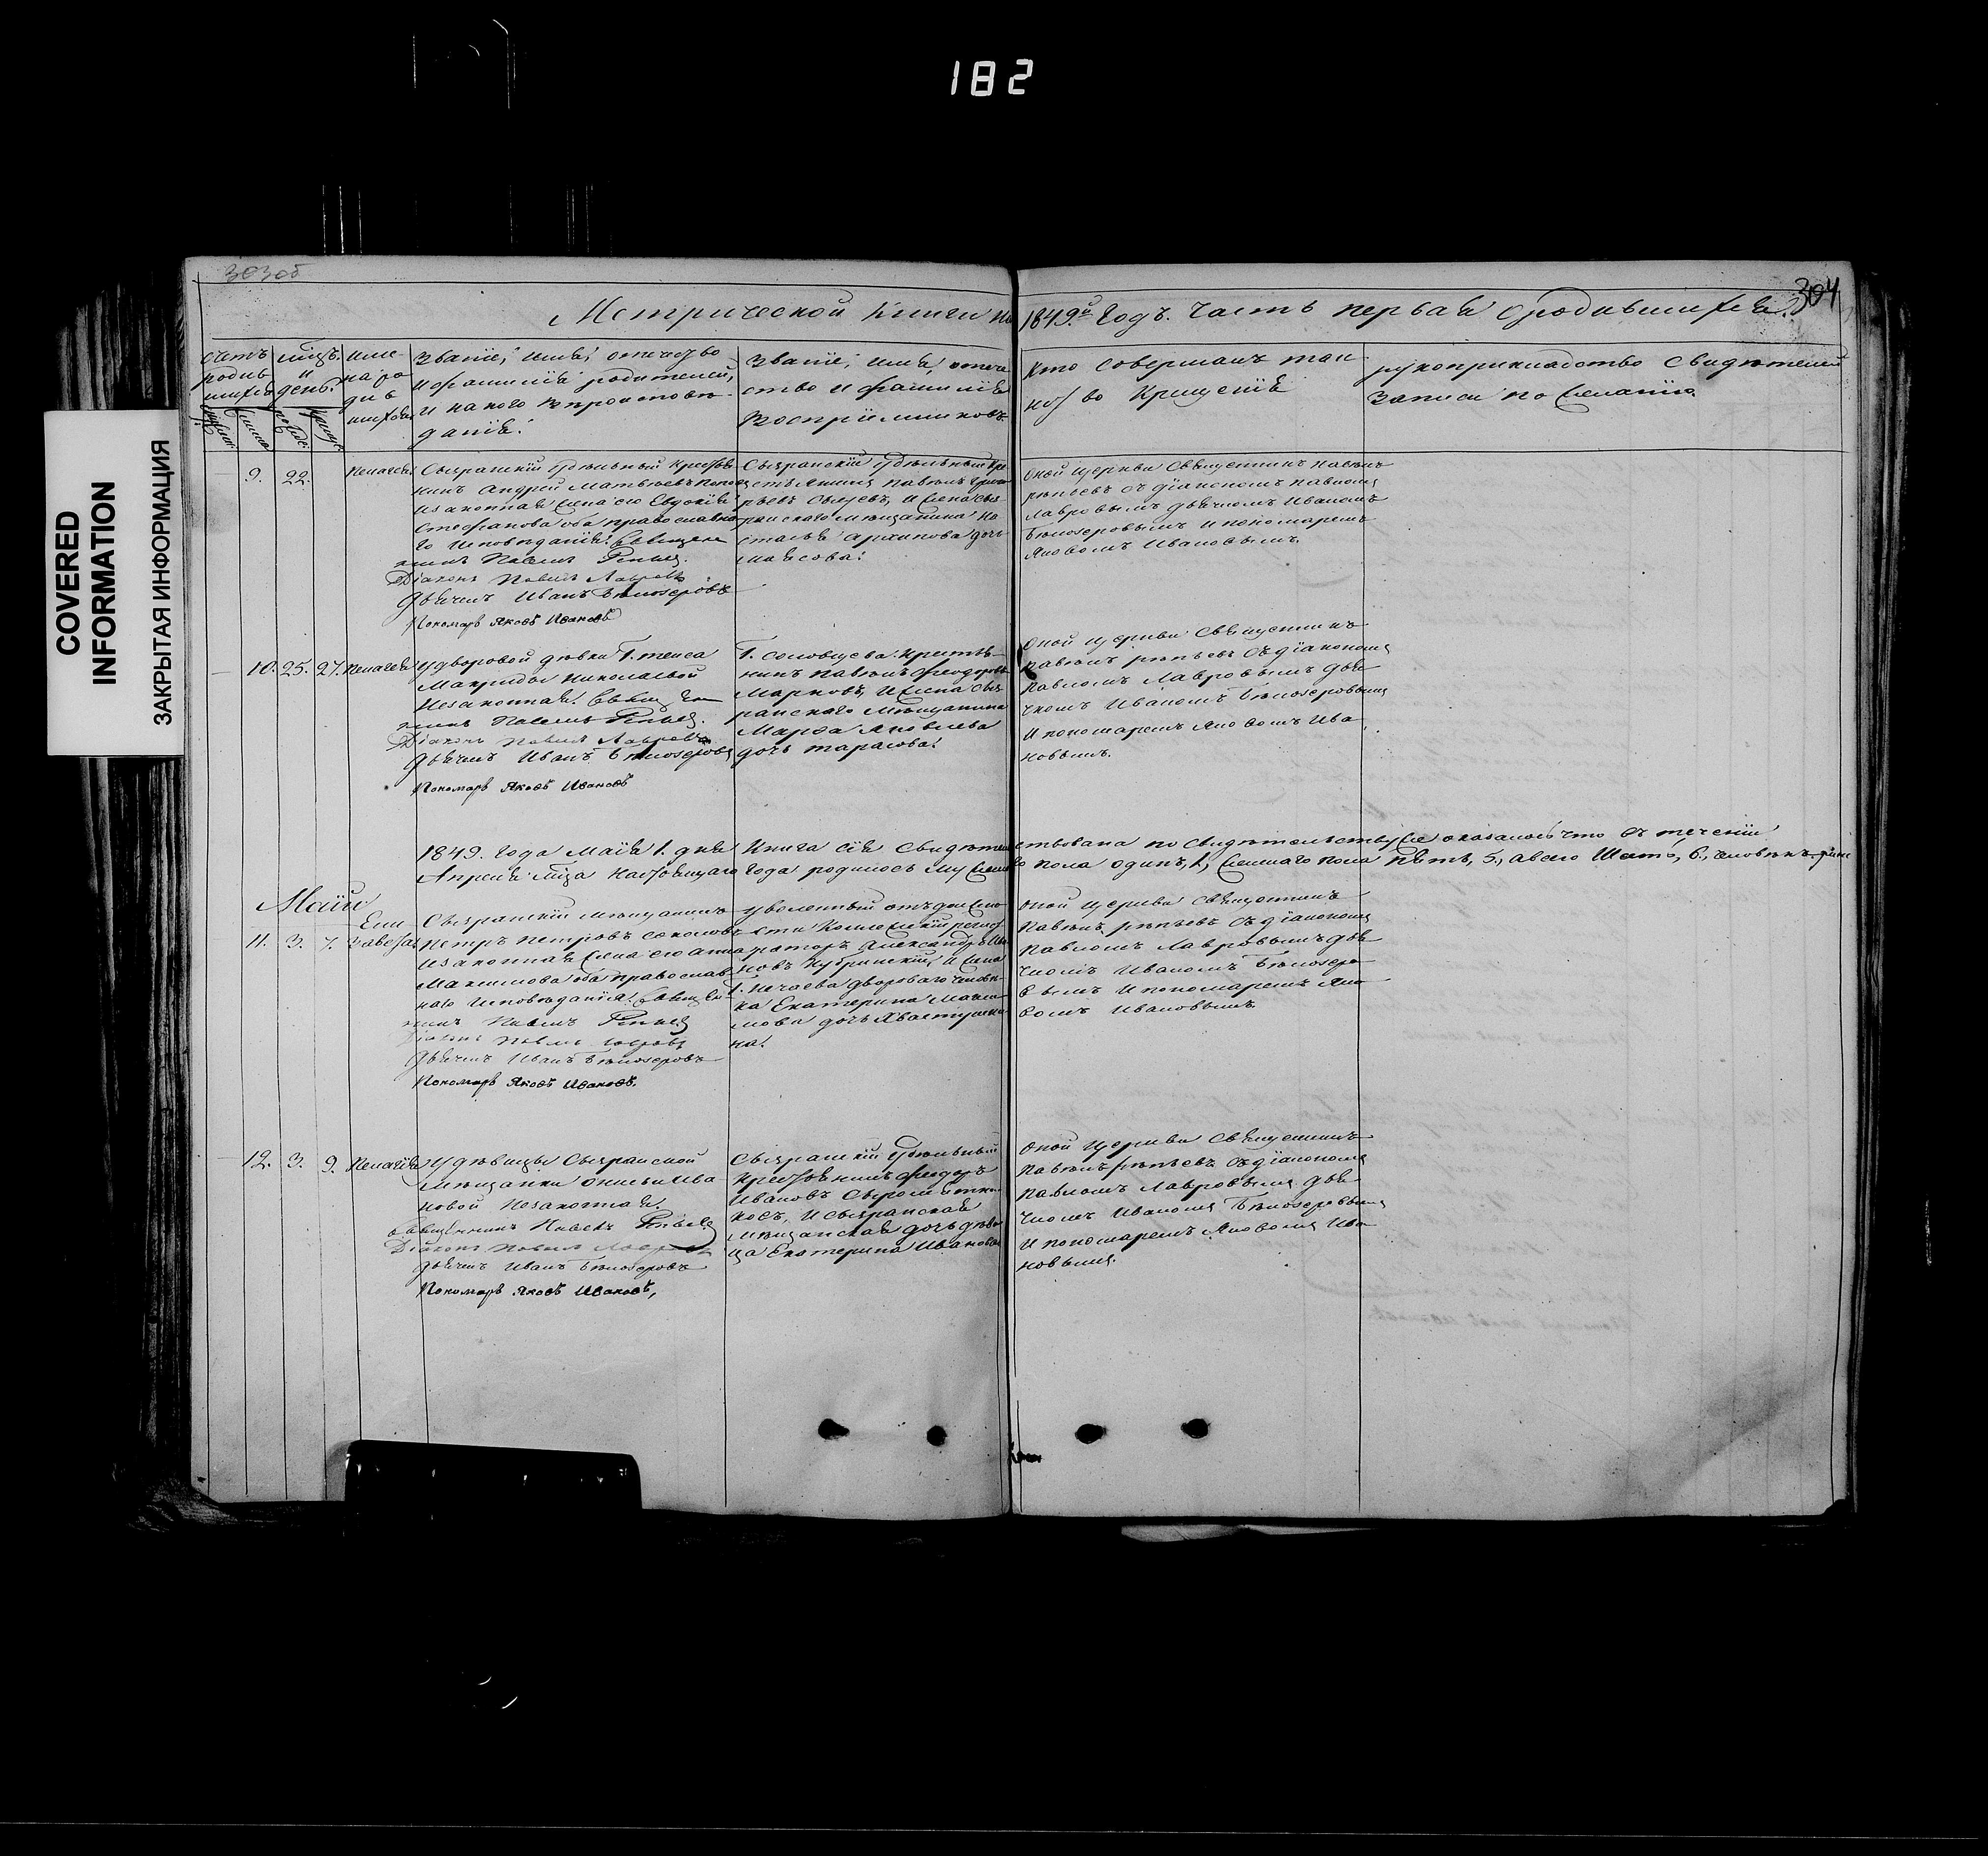 182
COVERED
INFORMATION
ЗАКРЫТАЯ ИНФОРМАЦИЯ
303об
304
Метрической книги на 1849й годъ. Часть первая о родившихся.
Счетъ родив шихся
мцъ и день.
име на ро див шихся
Званіе, имя, отчество
и фамилія родителей,
и какого вѣроисповѣ-
данія.
Званіе, имя, отче
ство и фамилія
воспріемниковъ
Кто совершалъ таи
нство Крещенія
рукоприкладство свидѣтелей
записи по желанію
9. 22.
Сызранскій удѣльный крестья
нинъ Андрей Матвѣевъ
и законная жена его Евдокія
Стефанова оба православна
го исповѣданія. Священн
никъ Павелъ
Діаконъ Павелъ Лавровъ
Дьячекъ Иванъ Бѣлозеровъ
Пономарь Яковъ Ивановъ
Сызранскій удѣльный кре
стьянинъ Павелъ
и жена сыз
ранскаго мѣщанина На
сталья Архипова дочь
оной церкви священникъ Павелъ
рѣпьевъ съ діакономъ Павломъ
Лавровымъ дьячкомъ Иваномъ
Бѣлозеровымъ и пономаремъ
Яковомъ Ивановымъ
10. 25. 27. Пелагея
У дворовой дѣвки Г.
Макриды Николаевой
незаконная. Священ
никъ Павелъ
Діаконъ Павелъ Лавровъ
Дьячекъ Иванъ Бѣлозеровъ
Пономарь Яковъ Ивановъ
Г. Соловцева крестья-
нинъ Павелъ Феодоровъ
Марковъ, и жена сыз
ранскаго мѣщанина
Марфа Яковлева
дочь Тарасова.
Оной церкви священникъ
Павелъ рѣпьевъ съ діакономъ
Павломъ Лавровымъ дья
чкомъ Иваномъ Бѣлозеровымъ
и пономаремъ Яковомъ Ива
новымъ.
1849. года Маія 1. дня книга сія свидѣтельствована по свидѣтельству же оказалось что въ теченіи
Апреля мца настоящаго года родилось мужеска го пола одинъ, 1, женскаго пола пять, 5, а всего шесть, 6, человѣкъ
Маіи
11. 3. 7. Ели завета
Сызранскій мѣщанинъ
Петръ Петровъ Соколовъ
и законная жена его Анна
Максимова оба православ
наго исповѣданія. Священ-
никъ Павелъ
Діаконъ Павелъ Лавровъ
Дьячекъ Иванъ Бѣлозеровъ
Пономарь Яковъ Ивановъ.
уволенный отъ должно
сти коллежскій регист
раторъ Александръ Ива
новъ и жена
Г. Нечаева двороваго человѣ-
ка Екатерина Макси
мова дочь Хвастунки
на.
оной церкви священникъ
Павелъ рѣпьевъ съ діакономъ
Павломъ Лавровымъ дья
чкомъ Иваномъ Бѣлозеро
вымъ и пономаремъ Яко
вомъ Ивановымъ
12. 3. 9. Пелагія
У дѣвицы Сызранской
мѣщанки Ива
новой незаконная.
Священникъ Павелъ
Діаконъ Павелъ
Дьячекъ Иванъ Бѣлозеровъ
Пономарь Яковъ Ивановъ,
Сызранскій удѣльный
крестьянинъ Феодоръ
Ивановъ Сыромятни
ковъ, и сызранская
мѣщанская дочь дѣви
ца Екатерина Иванова
Оной церкви священникъ
Павелъ рѣпьевъ съ діакономъ
Павломъ Лавровымъ дья
чкомъ Иваномъ Бѣлозеровымъ
и пономаремъ Яковомъ Ива
новымъ.